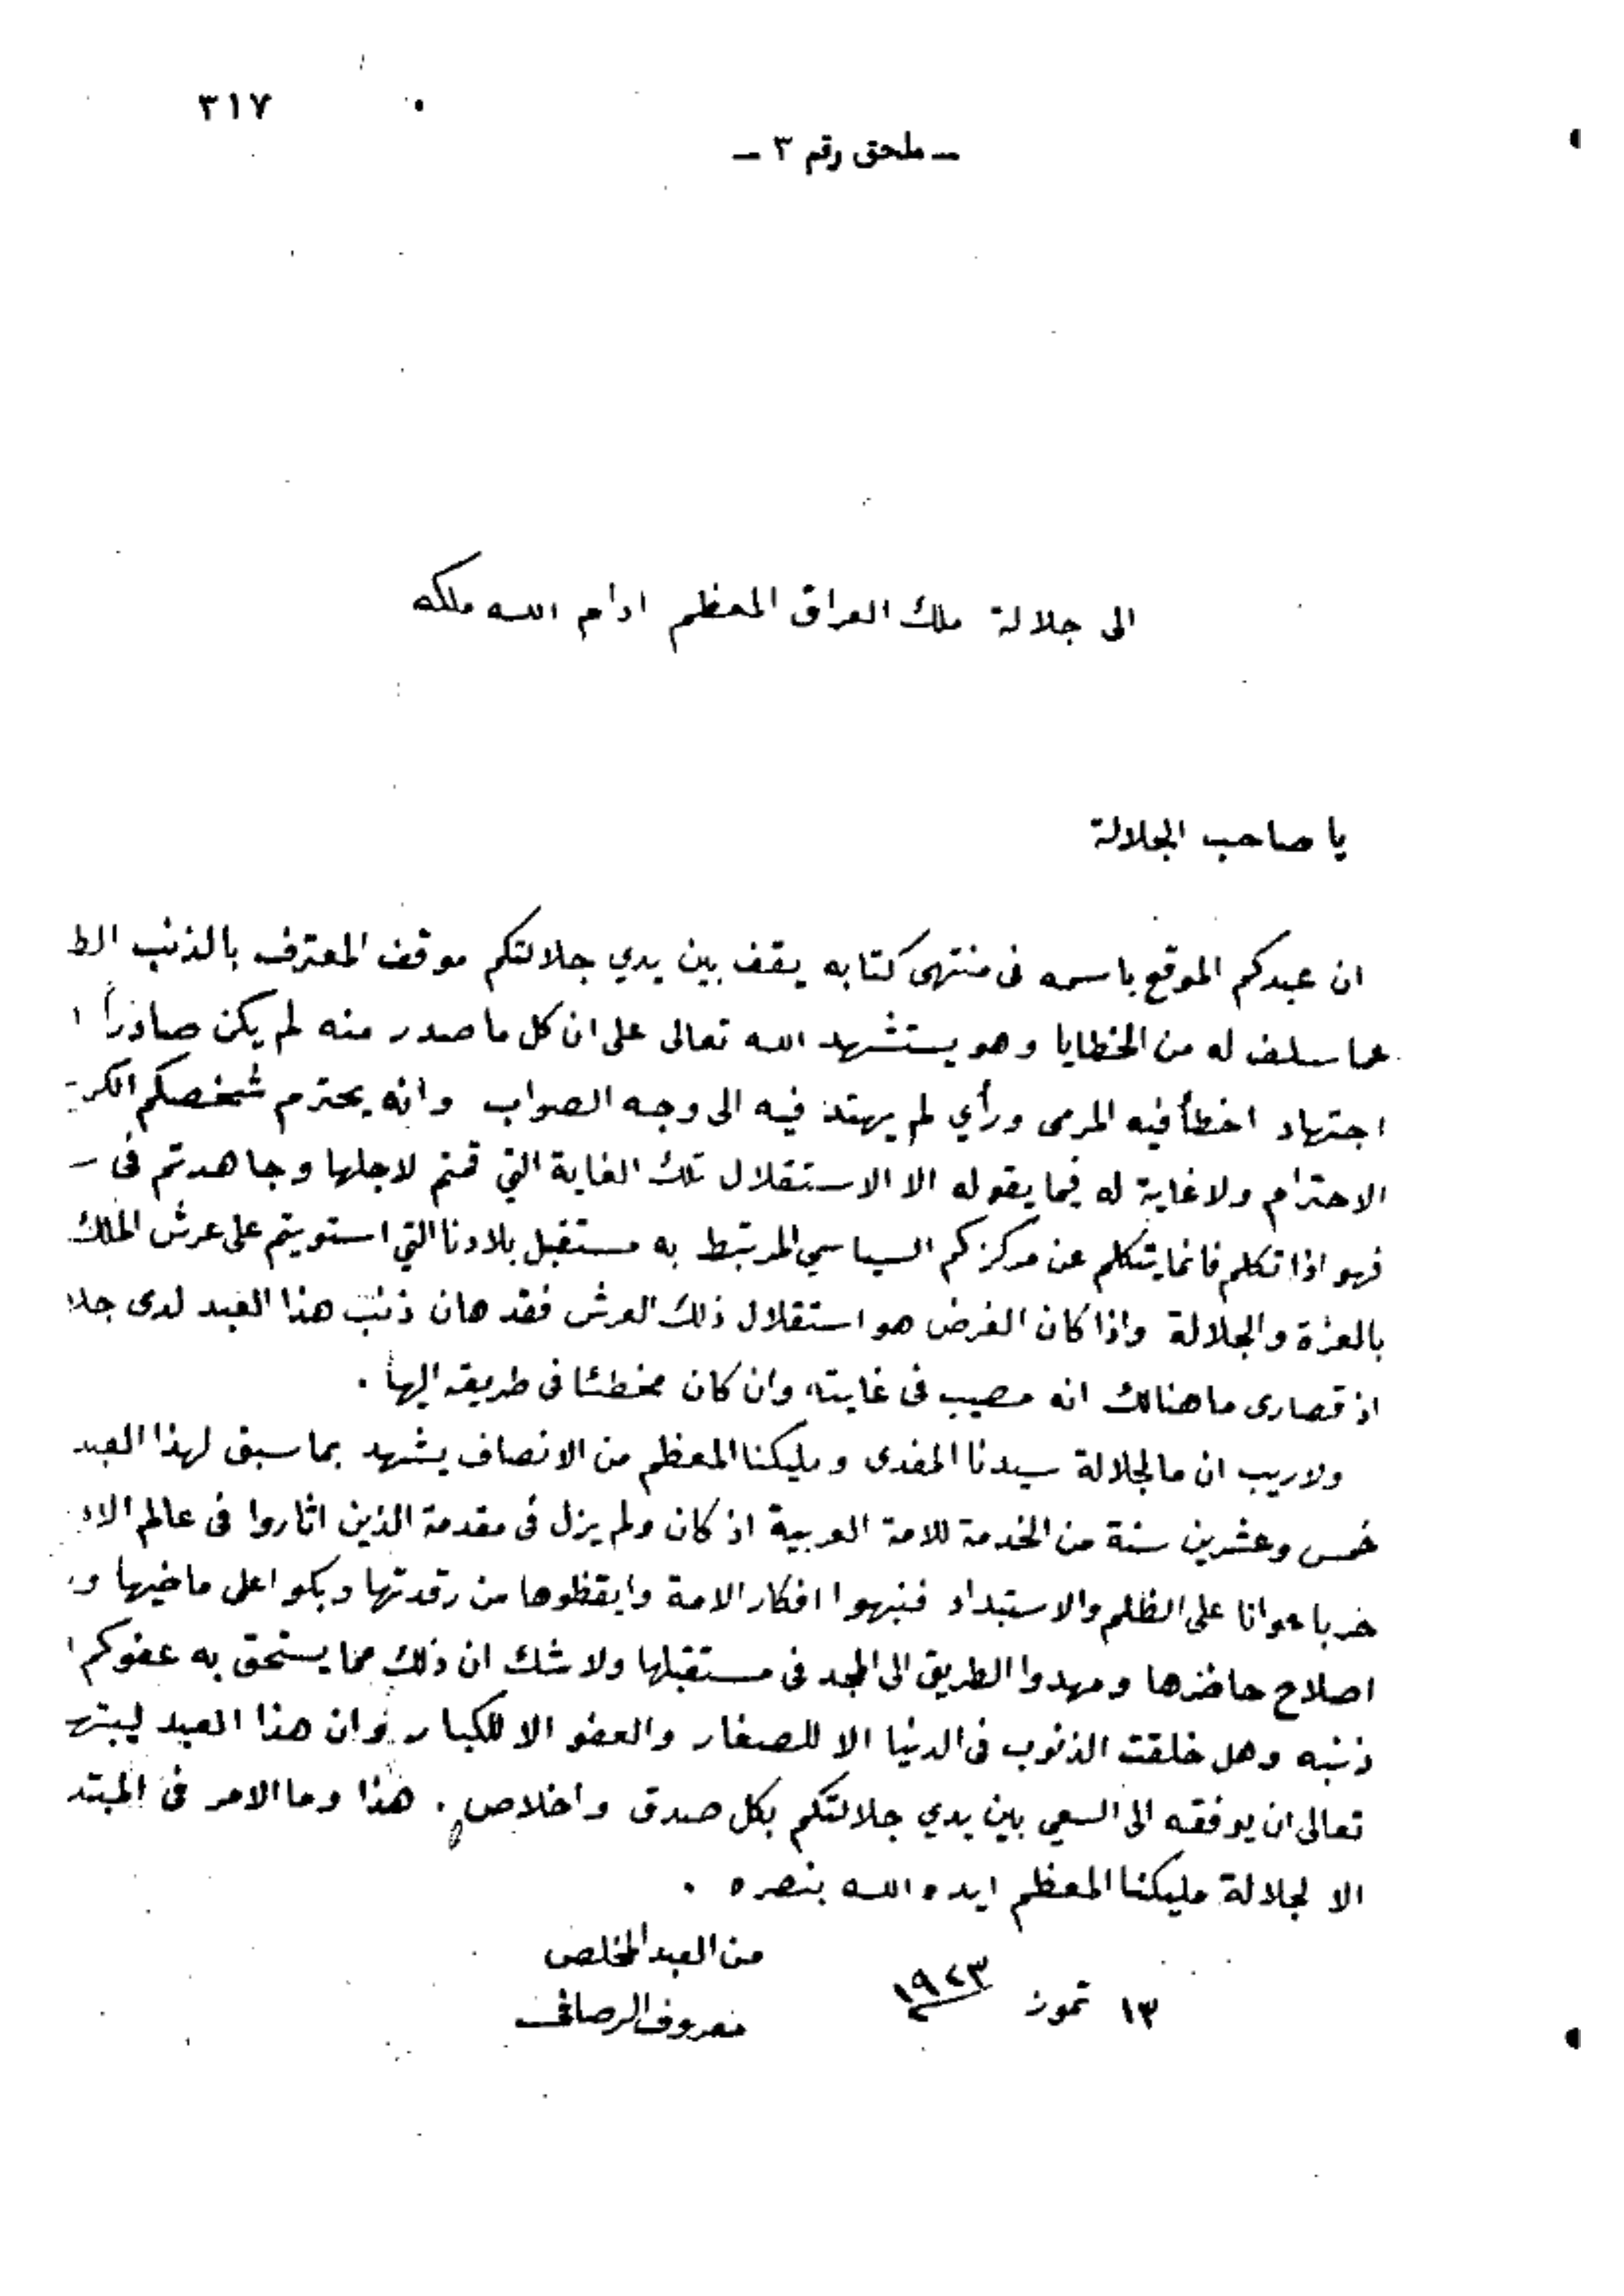 ٣١٧
ـ ملحق رقم ٣ ـ
الى جلالة ملك العراق المعظم ادام الله ملكه
يا صاحب الجلالة
ان عبدكم الموقع باسمه فى منتهى كتابه يقف بين يدي جلالتكم موقف المعترف بالذنب الط
عما سلف له من الخطايا وهو يستشهد الله تعالى على ان كل ما صدر منه لم يكن صادراً ا
اجتهاد اخطأ فيه المرمى ورأي لم يهتد فيه الى وجه الصواب وانه يحترم شخصكم الكر
الاحترام ولا غاية له فيما يقوله الا الاستقلال تلك الغاية التي قمتم لاجلها وجاهدتم فى
فهو اذا تكلم فانما يتكلم عن مركزكم السياسي المرتبط به مستقبل بلادنا التي استويتم على عرش الملك
بالعزة والجلالة واذا كان الغرض هو استقلال ذلك العرش فقد هان ذنب هذا العبد لدى جلا
اذ قصارى ما هنالك انه مصيب فى غايته وان كان مخطئا فى طريقه اليها .
ولا ريب ان ما لجلالة سيدنا المفدى ومليكنا المعظم من الانصاف يشهد بما سبق لهذا العبد
خمس وعشرين سنة من الخدمة للامة العربية اذ كان ولم يزل فى مقدمة الذين اثاروا فى عالم الاد
حربا عوانا على الظلم والاستبداد فنبهوا افكار الامة وايقظوها من رقدتها وبكوا على ماضيها و
اصلاح حاضرها ومهدوا الطريق الى المجد فى مستقبلها ولا شك ان ذلك مما يستحق به عفوكم ا
ذنبه وهل خلقت الذنوب فى الدنيا الا للصغار والعفو الا للكبار وان هذا العبد ليبته
تعالى ان يوفقه الى السعي بين يدي جلالتكم بكل صدق واخلاص . هذا وما الامر فى المبتد
الا لجلالة مليكنا المعظم ايده الله بنصره .
من العبد المخلص
١٣ تموز ١٩٢٣
معروف الرصافى